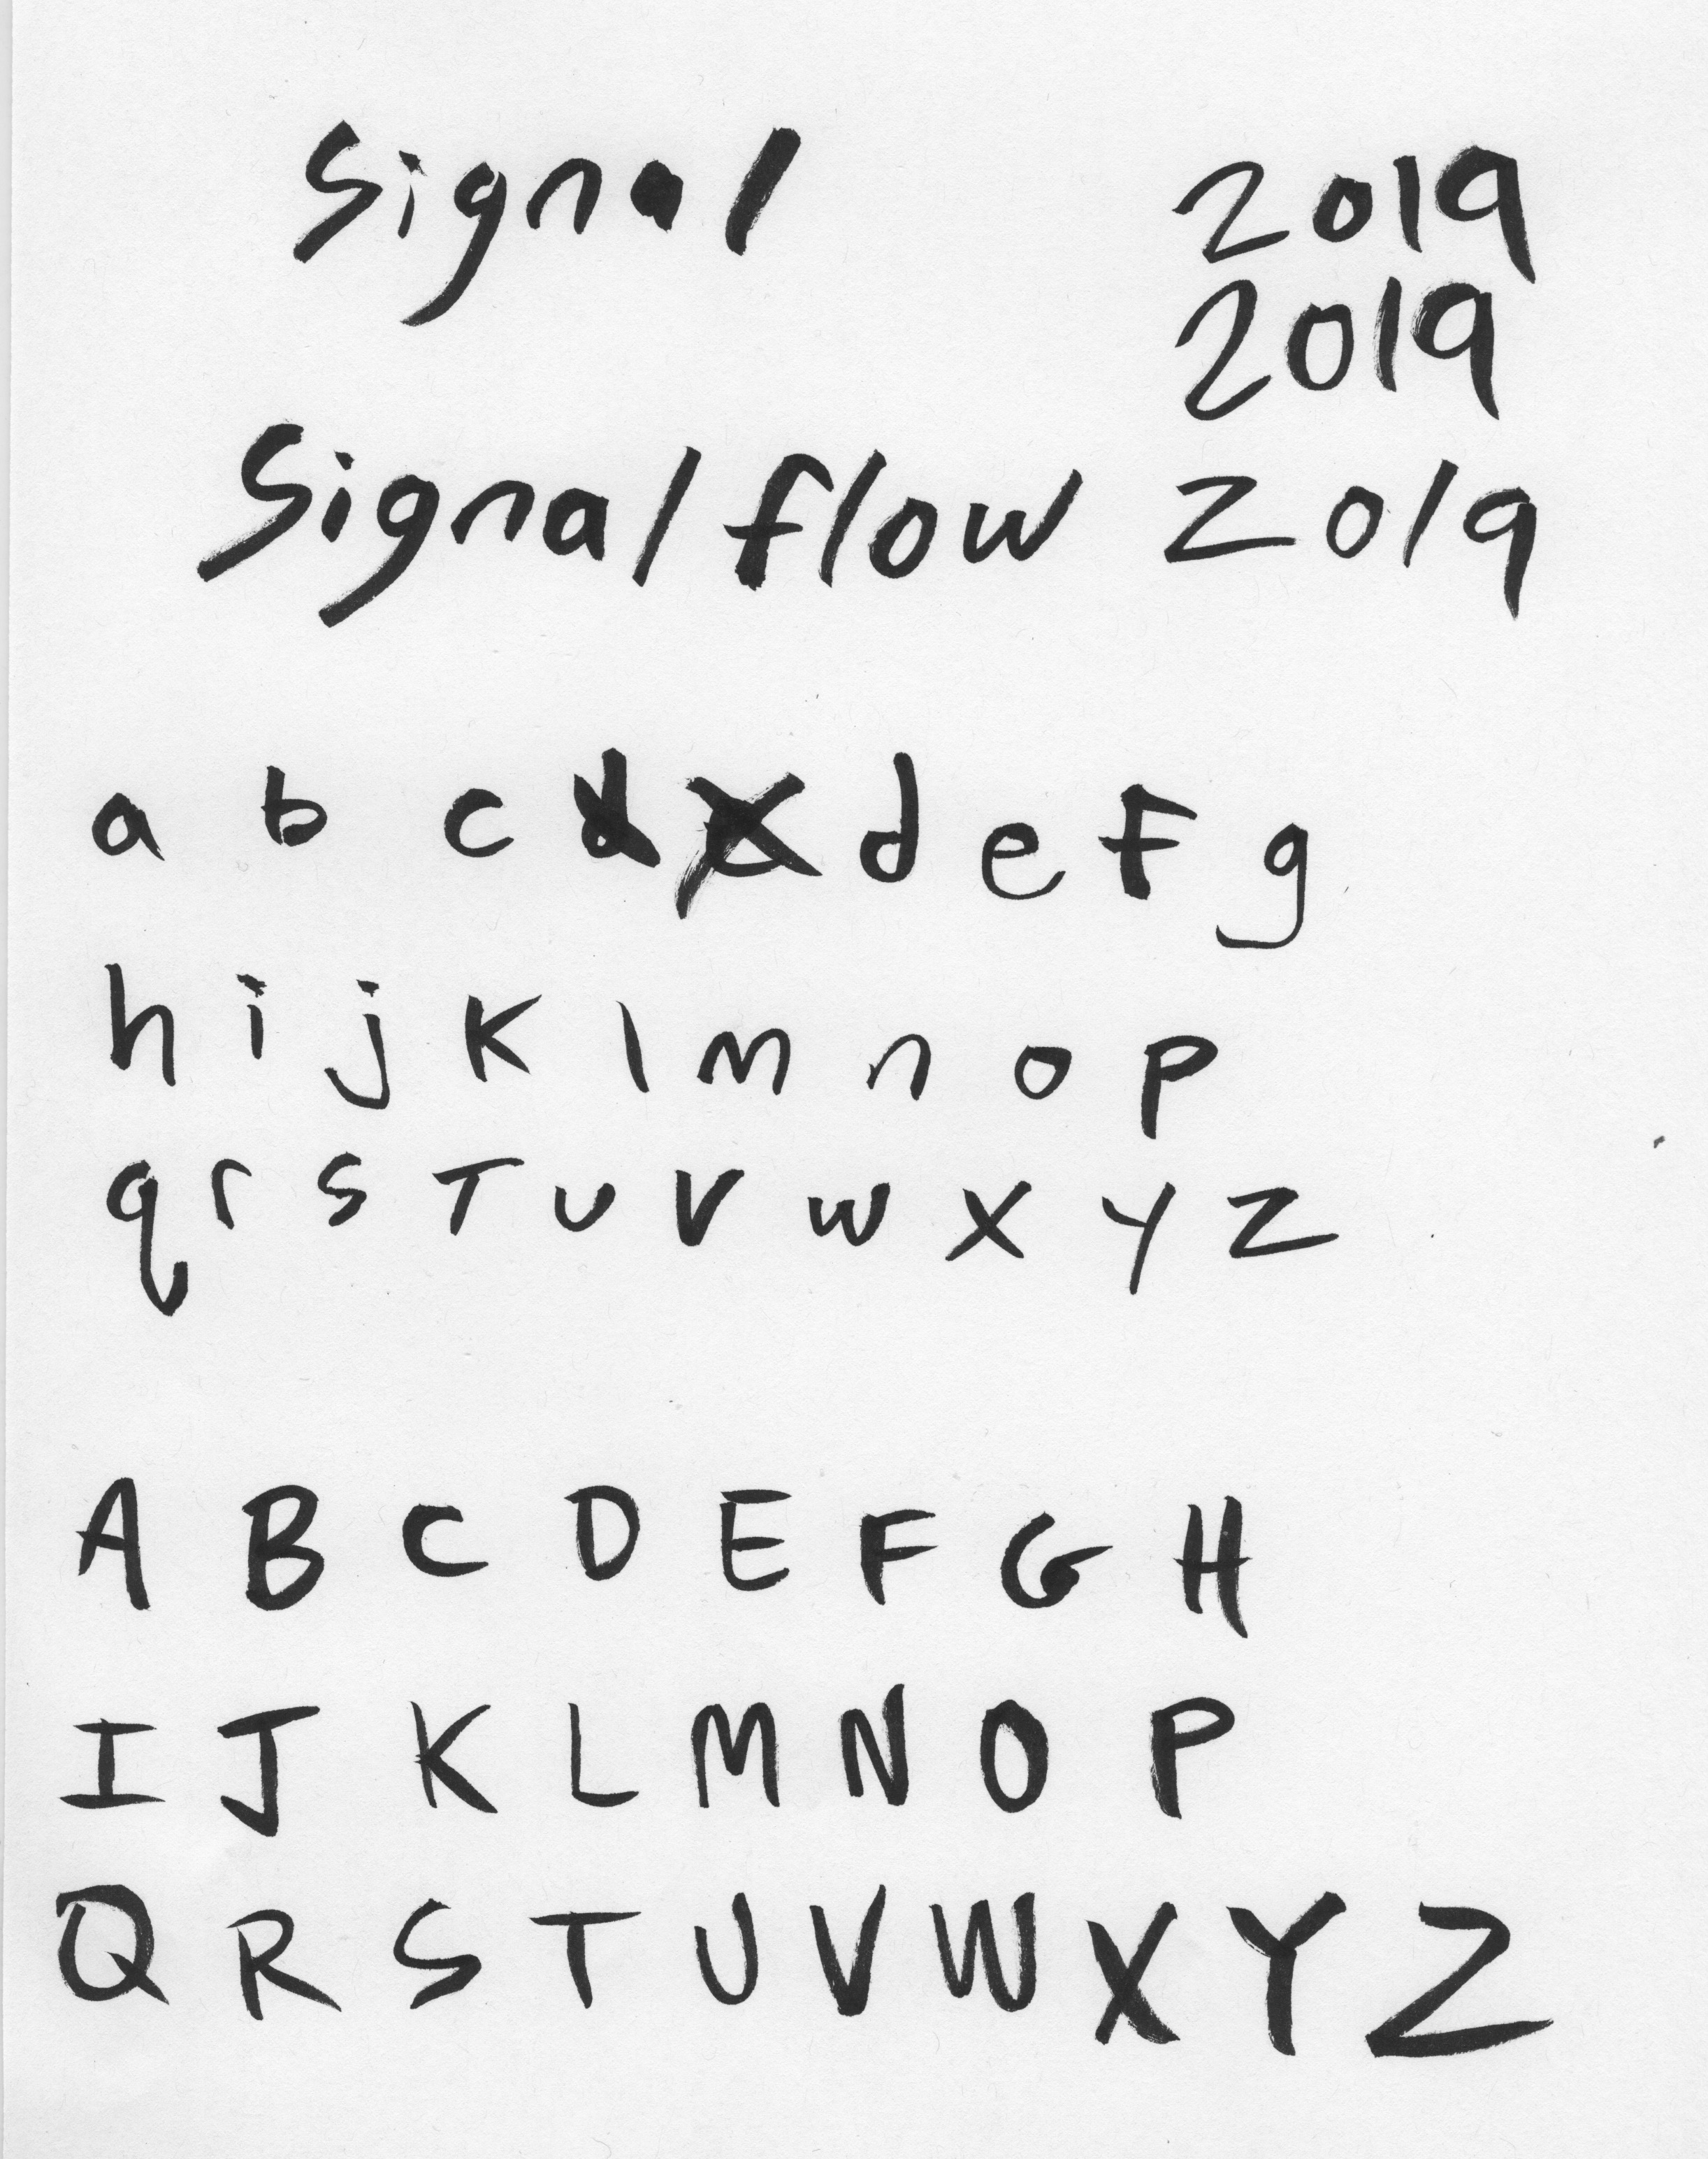 Signal 2019
2019
Signal flow 2019
a b c d e f g
h i j k l m n o p
q r s t u v w x y z
A B C D E F G H
I J K L M N O P
Q R S T U V W X Y Z